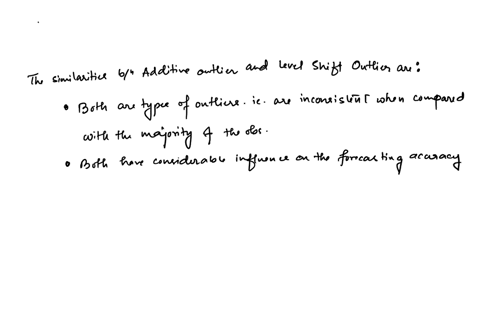 The similarities b/n Additive outlier and Level Shift Outlier are:
• Both are types of outliers. ie. are inconsistent when compared
with the majority of the obs.
• Both have considerable influence on the forecasting accuracy